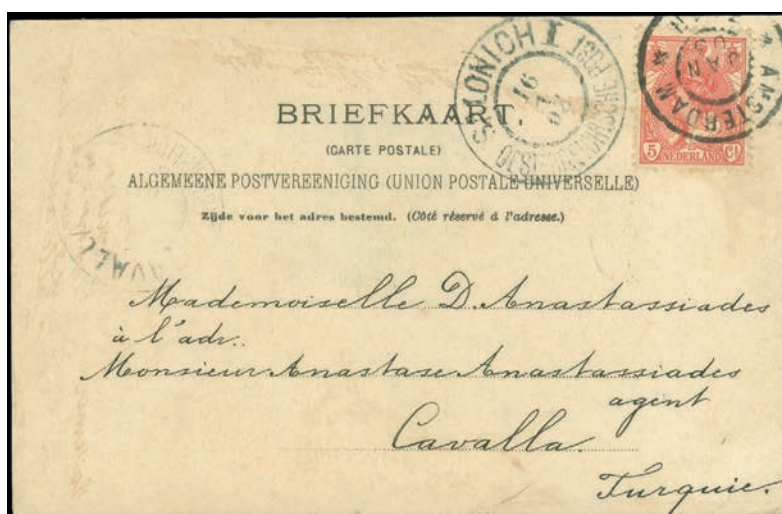 BRIEFKAART.
(CARTE POSTALE)
ALGEMEENE POSTVEREENIGING (UNION POSTALE UNIVERSELLE)
Zijde voor het adres bestemd. (Côté réservé à l'adresse.)
SALONICH I
POST
AMSTERDAM
JAN
5 NEDERLAND Ct
Mademoiselle D. Anastassiades
à l'adr.
Monsieur Anastase Anastassiades
agent
Cavalla.
Turquie.